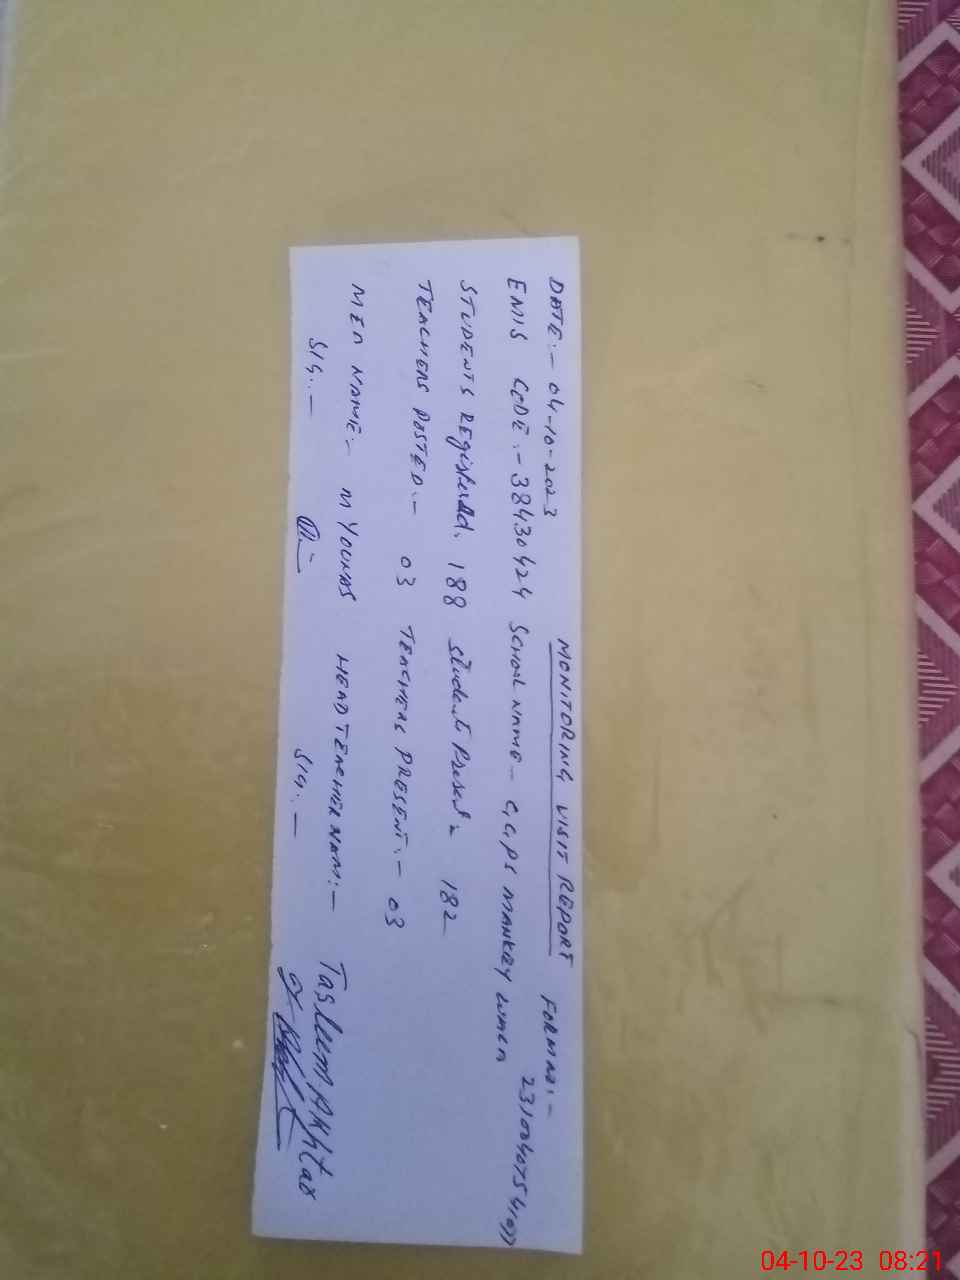 MONITORING VISIT REPORT
DATE:- 04-10-2023 FORM NO:-
EMIS CODE:- 38430424 SCHOOL NAME- G,G,PS MANKRY
STUDENTS REgisterdd. 188 students Present:- 182
TEACHERS POSTED:- 03 TEACHERS PRESENT:- 03
MEA NAME:- M YOUNAS HEAD TEACHER NAM:- Tasleem Akhtar
SIG:- SIG:-
04-10-23 08:21